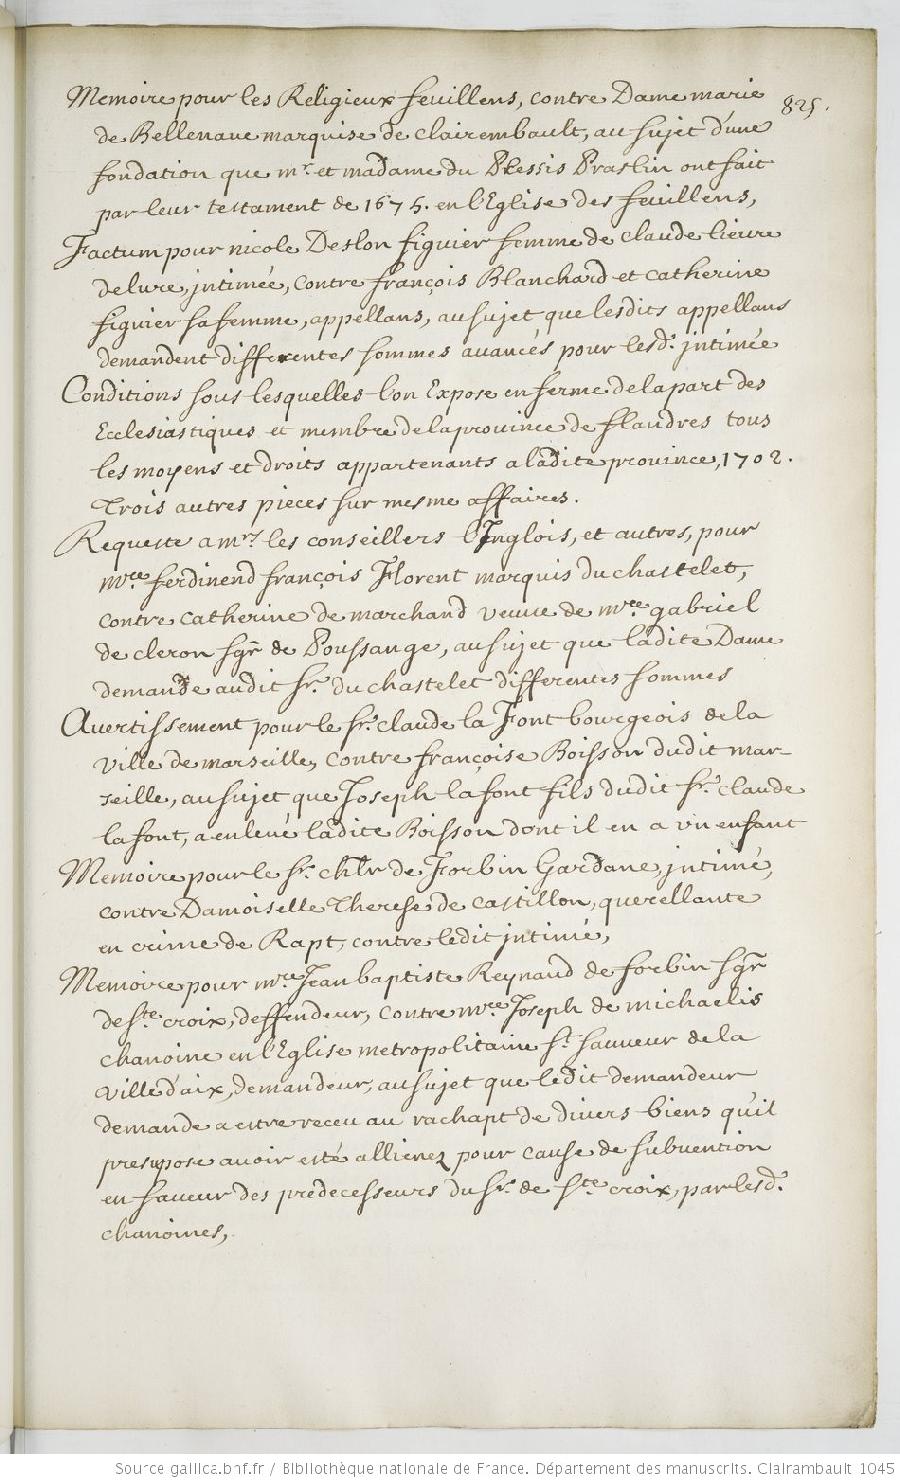 Memoire pour les Religieux feuillens, contre Dame marie
825.
de Bellenaue marquise de clairembault, au sujet d'une
fondation que mr. et madame du Plessis Praslin ont fait
par leur testament de 1675. en l'Eglise des feuillens,
Factum pour nicole Deslon figuier femme de claude lieure
delure, jntimée, contre françois Blanchard et catherine
figuier sa femme, appellans, au sujet que lesdits appellans
demandent differentes sommes auancés pour lesd. jntimée
Conditions sous lesquelles l'on Expose en ferme de la part des
Ecclesiastiques et membre de la prouince de flandres tous
les moyens et droits appartenants a ladite prouince, 1702.
Trois autres pieces sur mesme affaires.
Requeste a mrs. les conseillers l'Jnglois, et autres, pour
mre. ferdinend françois Florent marquis du chastelet,
contre catherine de marchand veuue de mre. gabriel
de cleron sgr. de Poussange, au sujet que ladite Dame
demande audit sr. du chastelet differentes sommes
Auertissement pour le sr. claude la Font bourgeois de la
ville de marseille, contre françoise Boisson dudit mar-
seille, au sujet que Joseph lafont fils dudit sr. claude
lafont, a enleué ladite Boisson dont il en a vn enfant
Memoire pour le sr. chlr de Forbin Gardane, jntimé,
contre Damoiselle Therese de castillon, querellante
en crime de Rapt, contre ledit jntimé,
Memoire pour mre. Jean baptiste Reynaud de forbin sgr
de ste. croix, deffendeur, contre mre. Joseph de michaelis
chanoine en l'Eglise metropolitaine st. sauueur de la
ville d'aix, demandeur, au sujet que ledit demandeur
demande a estre receu au rachapt de diuers biens qu'il
presupose auoir esté allienez pour cause de subuention
en faueur des predecesseurs du sr. de ste. croix, par lesd.
chanoines,
Source gallica.bnf.fr / Bibliothèque nationale de France. Département des manuscrits. Clairambault 1045